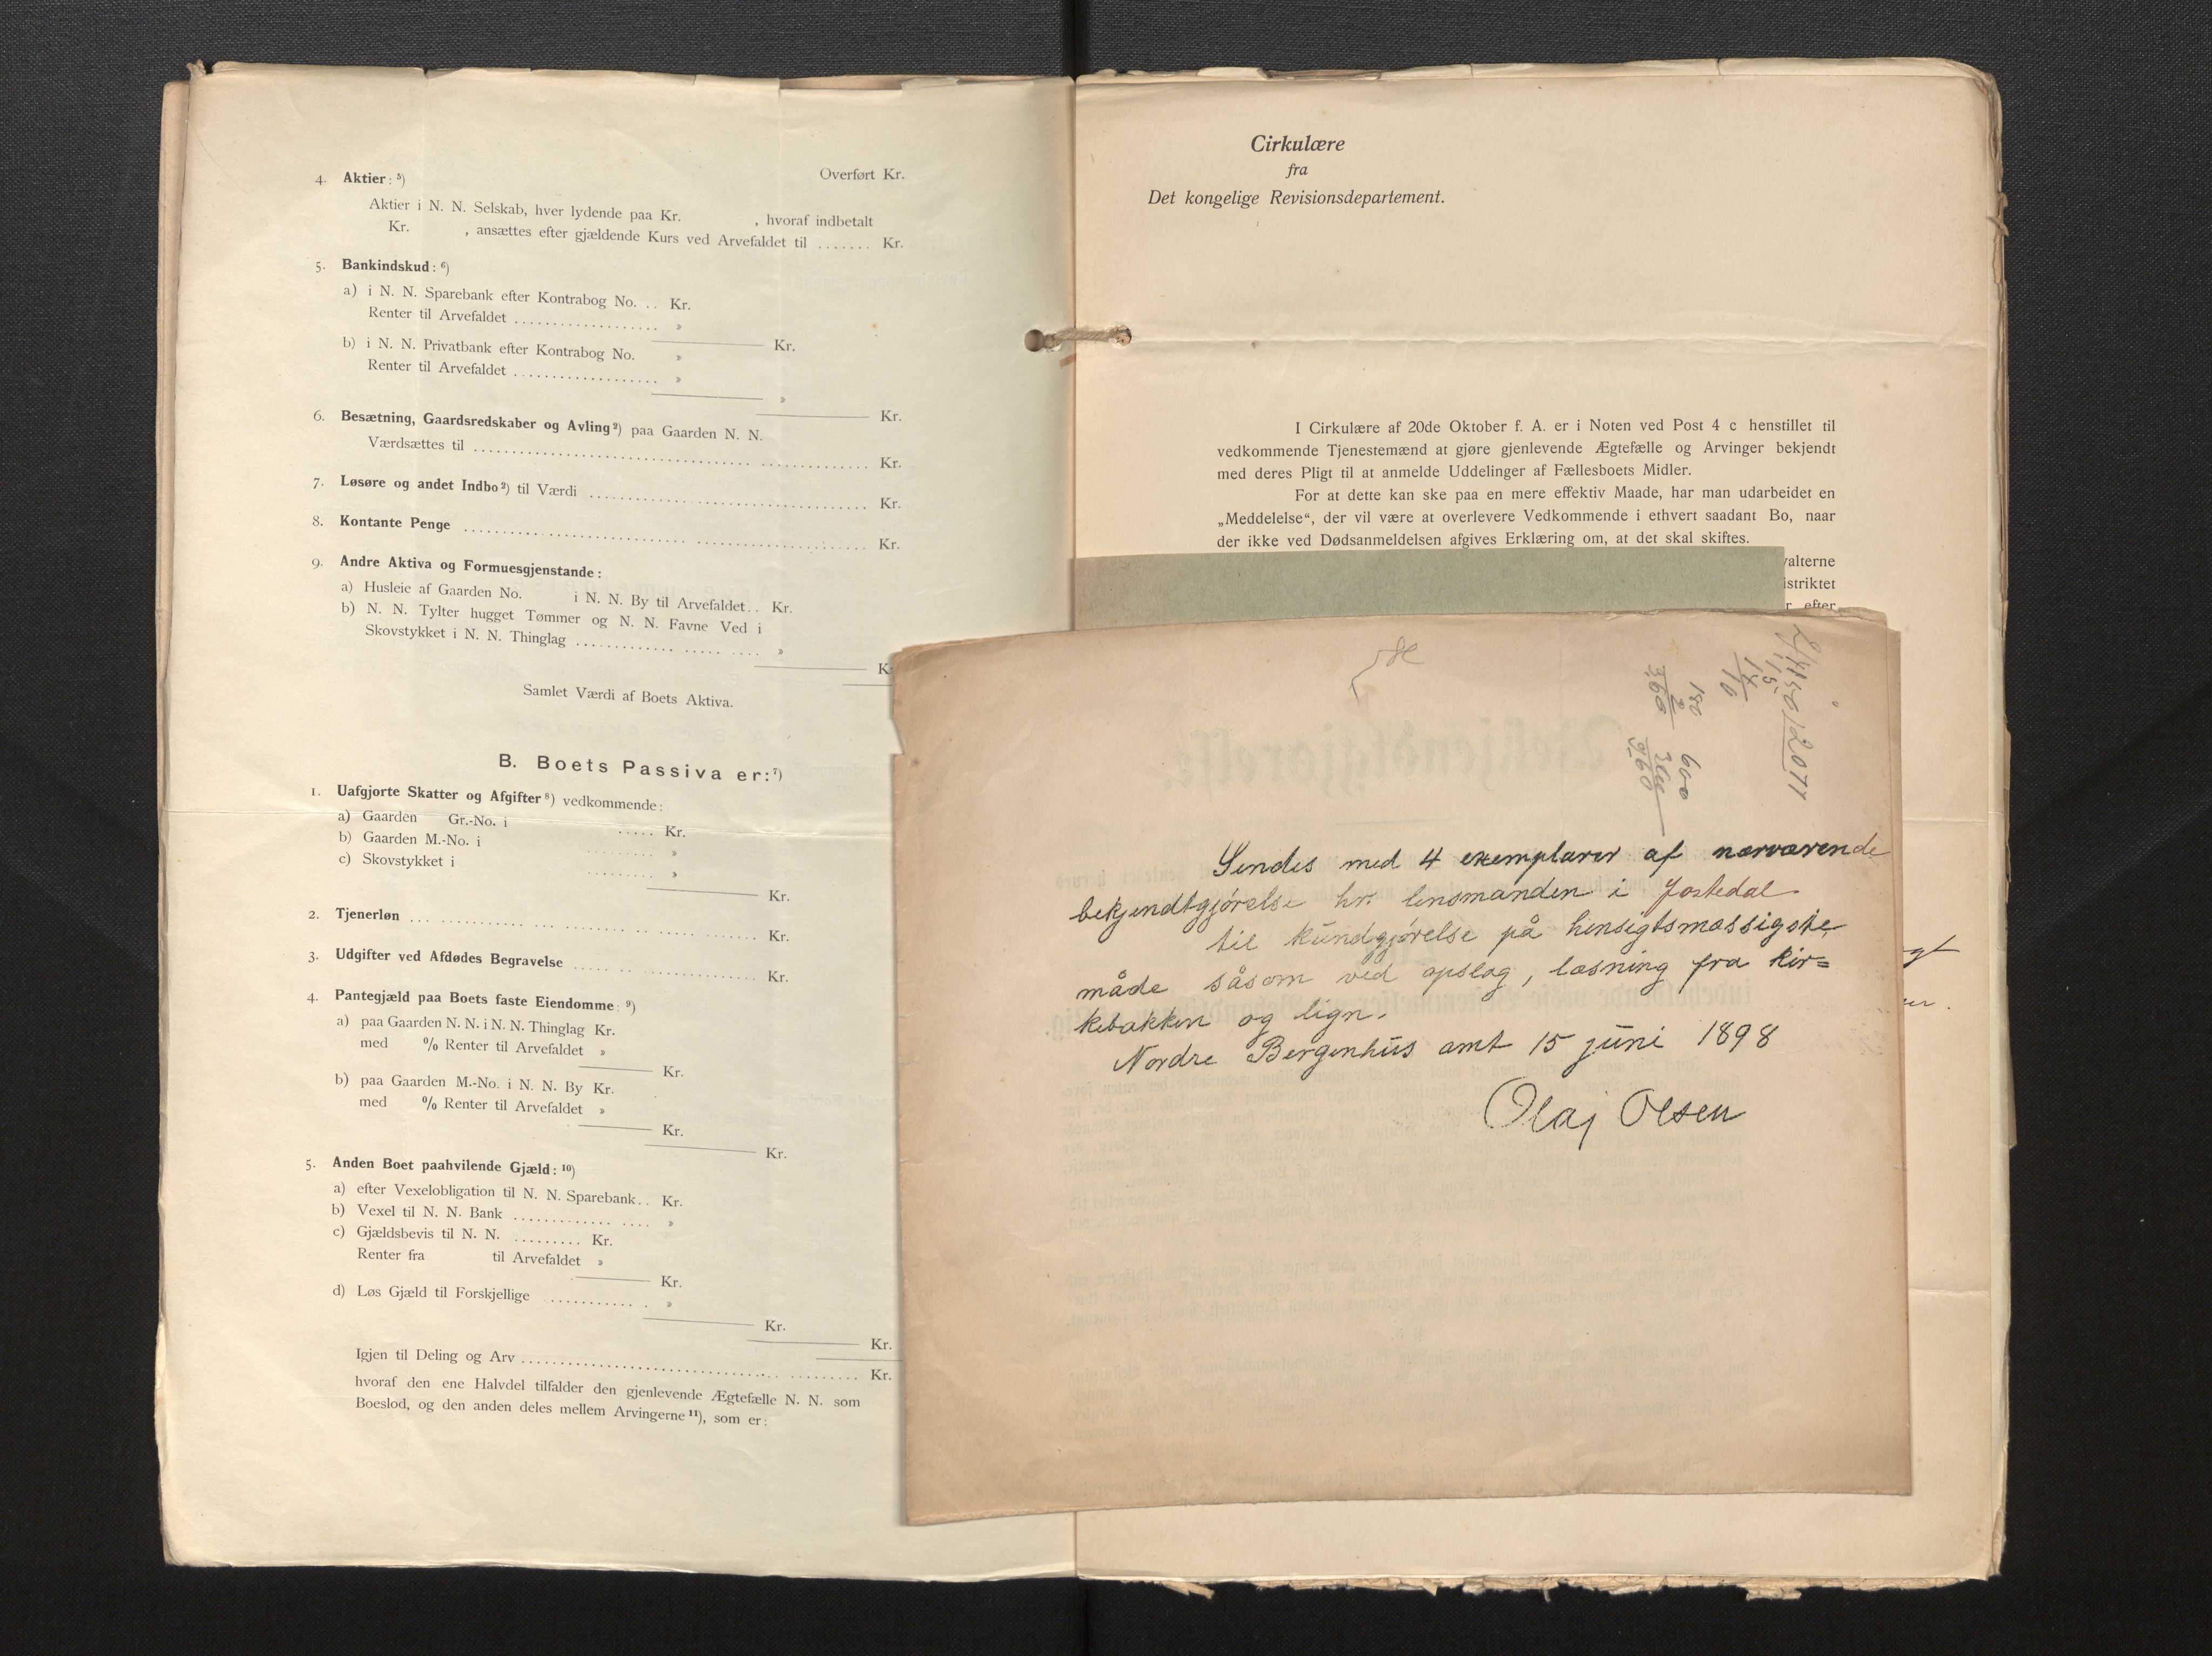 4. Aktier: ⁵) Overført Kr.
Aktier i N. N. Selskab, hver lydende paa Kr. , hvoraf indbetalt
Kr. , ansættes efter gjældende Kurs ved Arvefaldet til ....... Kr.
5. Bankindskud: ⁶)
a) i N. N. Sparebank efter Kontrabog No. .. Kr.
Renter til Arvefaldet ................... »
Kr.
b) i N. N. Privatbank efter Kontrabog No. »
Renter til Arvefaldet ................... »
»
Kr.
6. Besætning, Gaardsredskaber og Avling ²) paa Gaarden N. N.
Værdsættes til .................................................... Kr.
7. Løsøre og andet Indbo ²) til Værdi .................................... Kr.
8. Kontante Penge .................................................... Kr.
9. Andre Aktiva og Formuesgjenstande:
a) Husleie af Gaarden No. i N. N. By til Arvefaldet.. Kr.
b) N. N. Tylter hugget Tømmer og N. N. Favne Ved i
Skovstykket i N. N. Thinglag ............. ..... .... »
K
Samlet Værdi af Boets Aktiva.
B. Boets Passiva er: ⁷)
1. Uafgjorte Skatter og Afgifter ⁸) vedkommende:
a) Gaarden Gr.-No. i ..... Kr.
b) Gaarden M.-No. i ......... »
c) Skovstykket i ......... »
Kr.
2. Tjenerløn ... .......... ........ .. ... .. ..... ....... Kr.
3. Udgifter ved Afdødes Begravelse ..... .. ............... Kr.
4. Pantegjæld paa Boets faste Eiendomme: ⁹)
a) paa Gaarden N. N. i N. N. Thinglag Kr.
med % Renter til Arvefaldet »
Kr.
b) paa Gaarden M.-No. i N. N. By Kr.
med % Renter til Arvefaldet »
Kr.
Kr.
5. Anden Boet paahvilende Gjæld: ¹⁰)
a) efter Vexelobligation til N. N. Sparebank.. Kr.
b) Vexel til N. N. Bank ............. .... »
c) Gjældsbevis til N. N. ......... Kr.
Renter fra til Arvefaldet »
Kr.
d) Løs Gjæld til Forskjellige ........... . »
Kr.
Kr.
Igjen til Deling og Arv ............................................. Kr.
hvoraf den ene Halvdel tilfalder den gjenlevende Ægtefælle N. N. som
Boeslod, og den anden deles mellem Arvingerne ¹¹), som er:
Cirkulære
fra
Det kongelige Revisionsdepartement.
I Cirkulære af 20de Oktober f. A. er i Noten ved Post 4 c henstillet til
vedkommende Tjenestemænd at gjøre gjenlevende Ægtefælle og Arvinger bekjendt
med deres Pligt til at anmelde Uddelinger af Fællesboets Midler.
For at dette kan ske paa en mere effektiv Maade, har man udarbeidet en
„Meddelelse“, der vil være at overlevere Vedkommende i ethvert saadant Bo, naar
der ikke ved Dødsanmeldelsen afgives Erklæring om, at det skal skiftes.
valterne
istriktet
r efter
180
2
3,60
600
360
9,60
Sendes med 4 exemplarer af nærværende
bekjendtgjørelse hr. lensmanden i Jostedal
til kundgjørelse på hensigtsmæssigste
måde såsom ved opslag, læsning fra kir=
kebakken og lign.
Nordre Bergenhus amt 15 juni 1898
Olaj Olsen